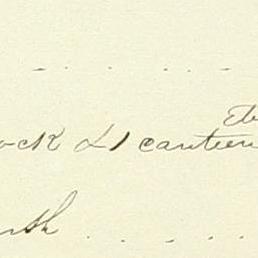 Et
ock & 1 canteen
nth